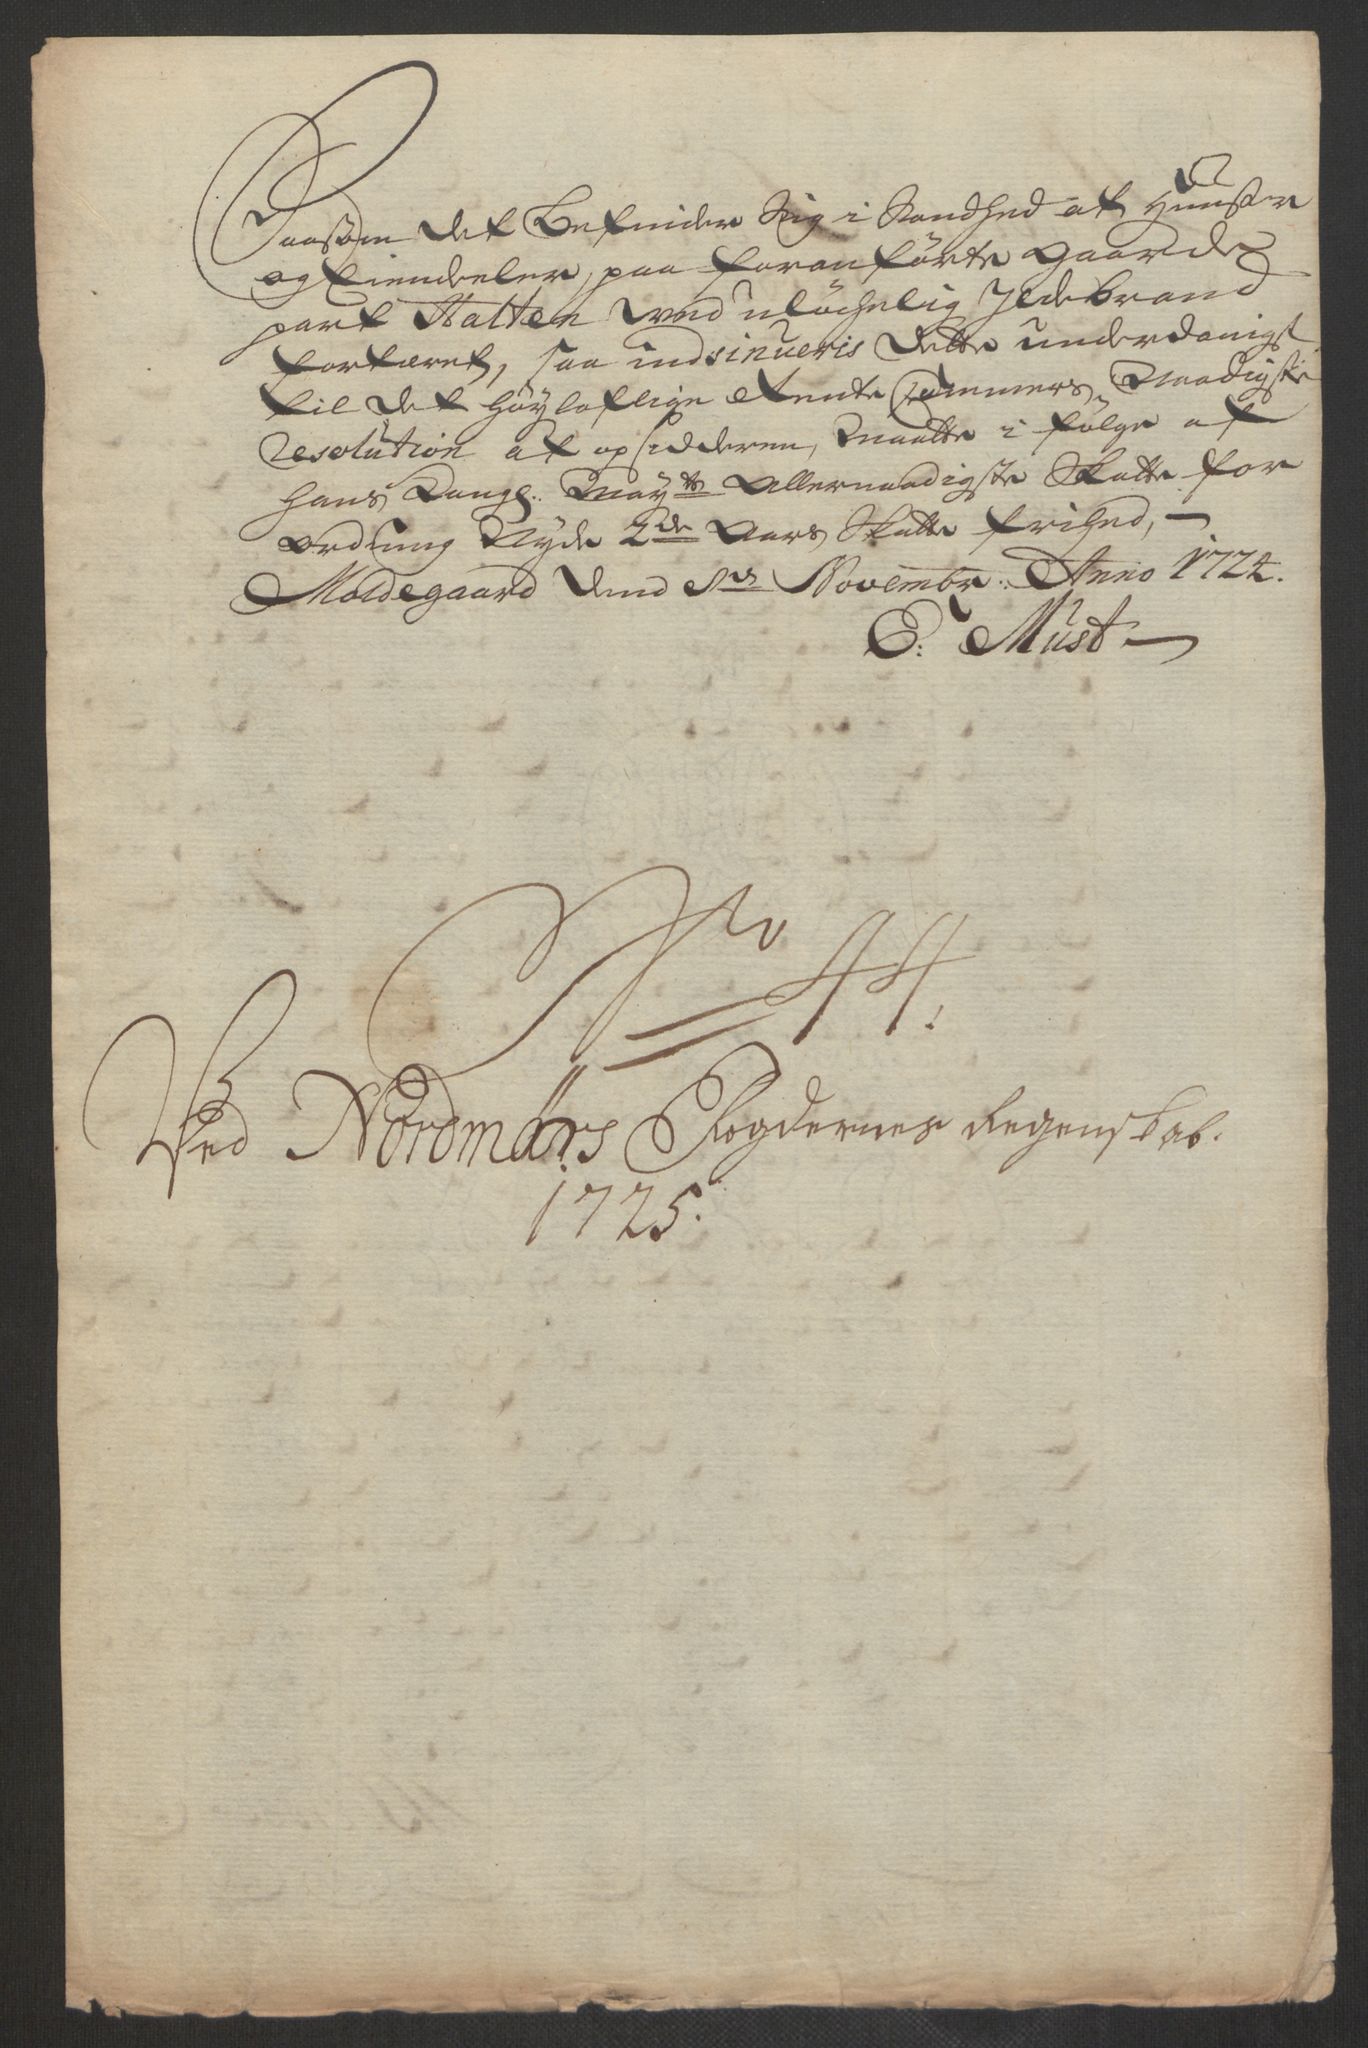 Saasom det befinder Sig i Sandhed at Huuser
og Eiendeeler, paa foranførte gaardz
part Stalten ved uløchelig Ildebrand
fortæret, saa indsinueris dette underdanigst
til det høyloflige Rente Cammers Naadigste
resolution at opsidderen, maatte i følge af
hans Kongl. May:ts Allernaadigste Skatte for
ordning Nyde 2de Aars Skatte frihed, -
Moldegaard dend Novembr: Anno 1724.
E: Must
No 44.
Ved Nordmørs Fogderies Regenskab.
1725.